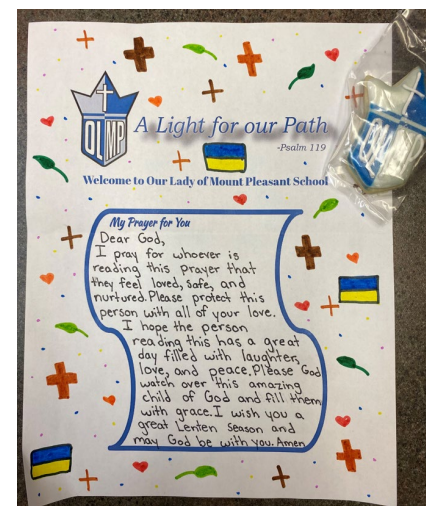 OLMP
A Light for our Path
-Psalm 119
Welcome to Our Lady of Mount Pleasant School
My Prayer for You
Dear God,
I pray for whoever is
reading this prayer that
they feel loved, safe, and
nurtured. Please protect this
person with all of your love.
I hope the person
reading this has a great
day filled with laughter,
love, and peace. Please God
watch over this amazing
child of God and fill them
with grace. I wish you a
great Lenten season and
may God be with you. Amen